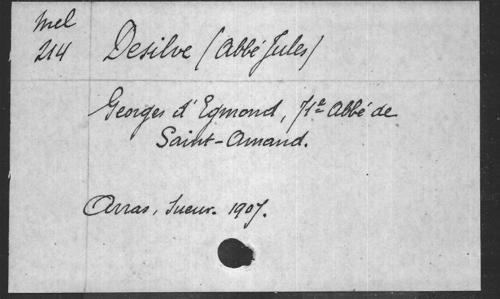 Mel
214
Desilve (Abbé Jules)
Georges d'Egmond, 71e Abbé de
Saint-Amand.
Arras, Sueur. 1907.